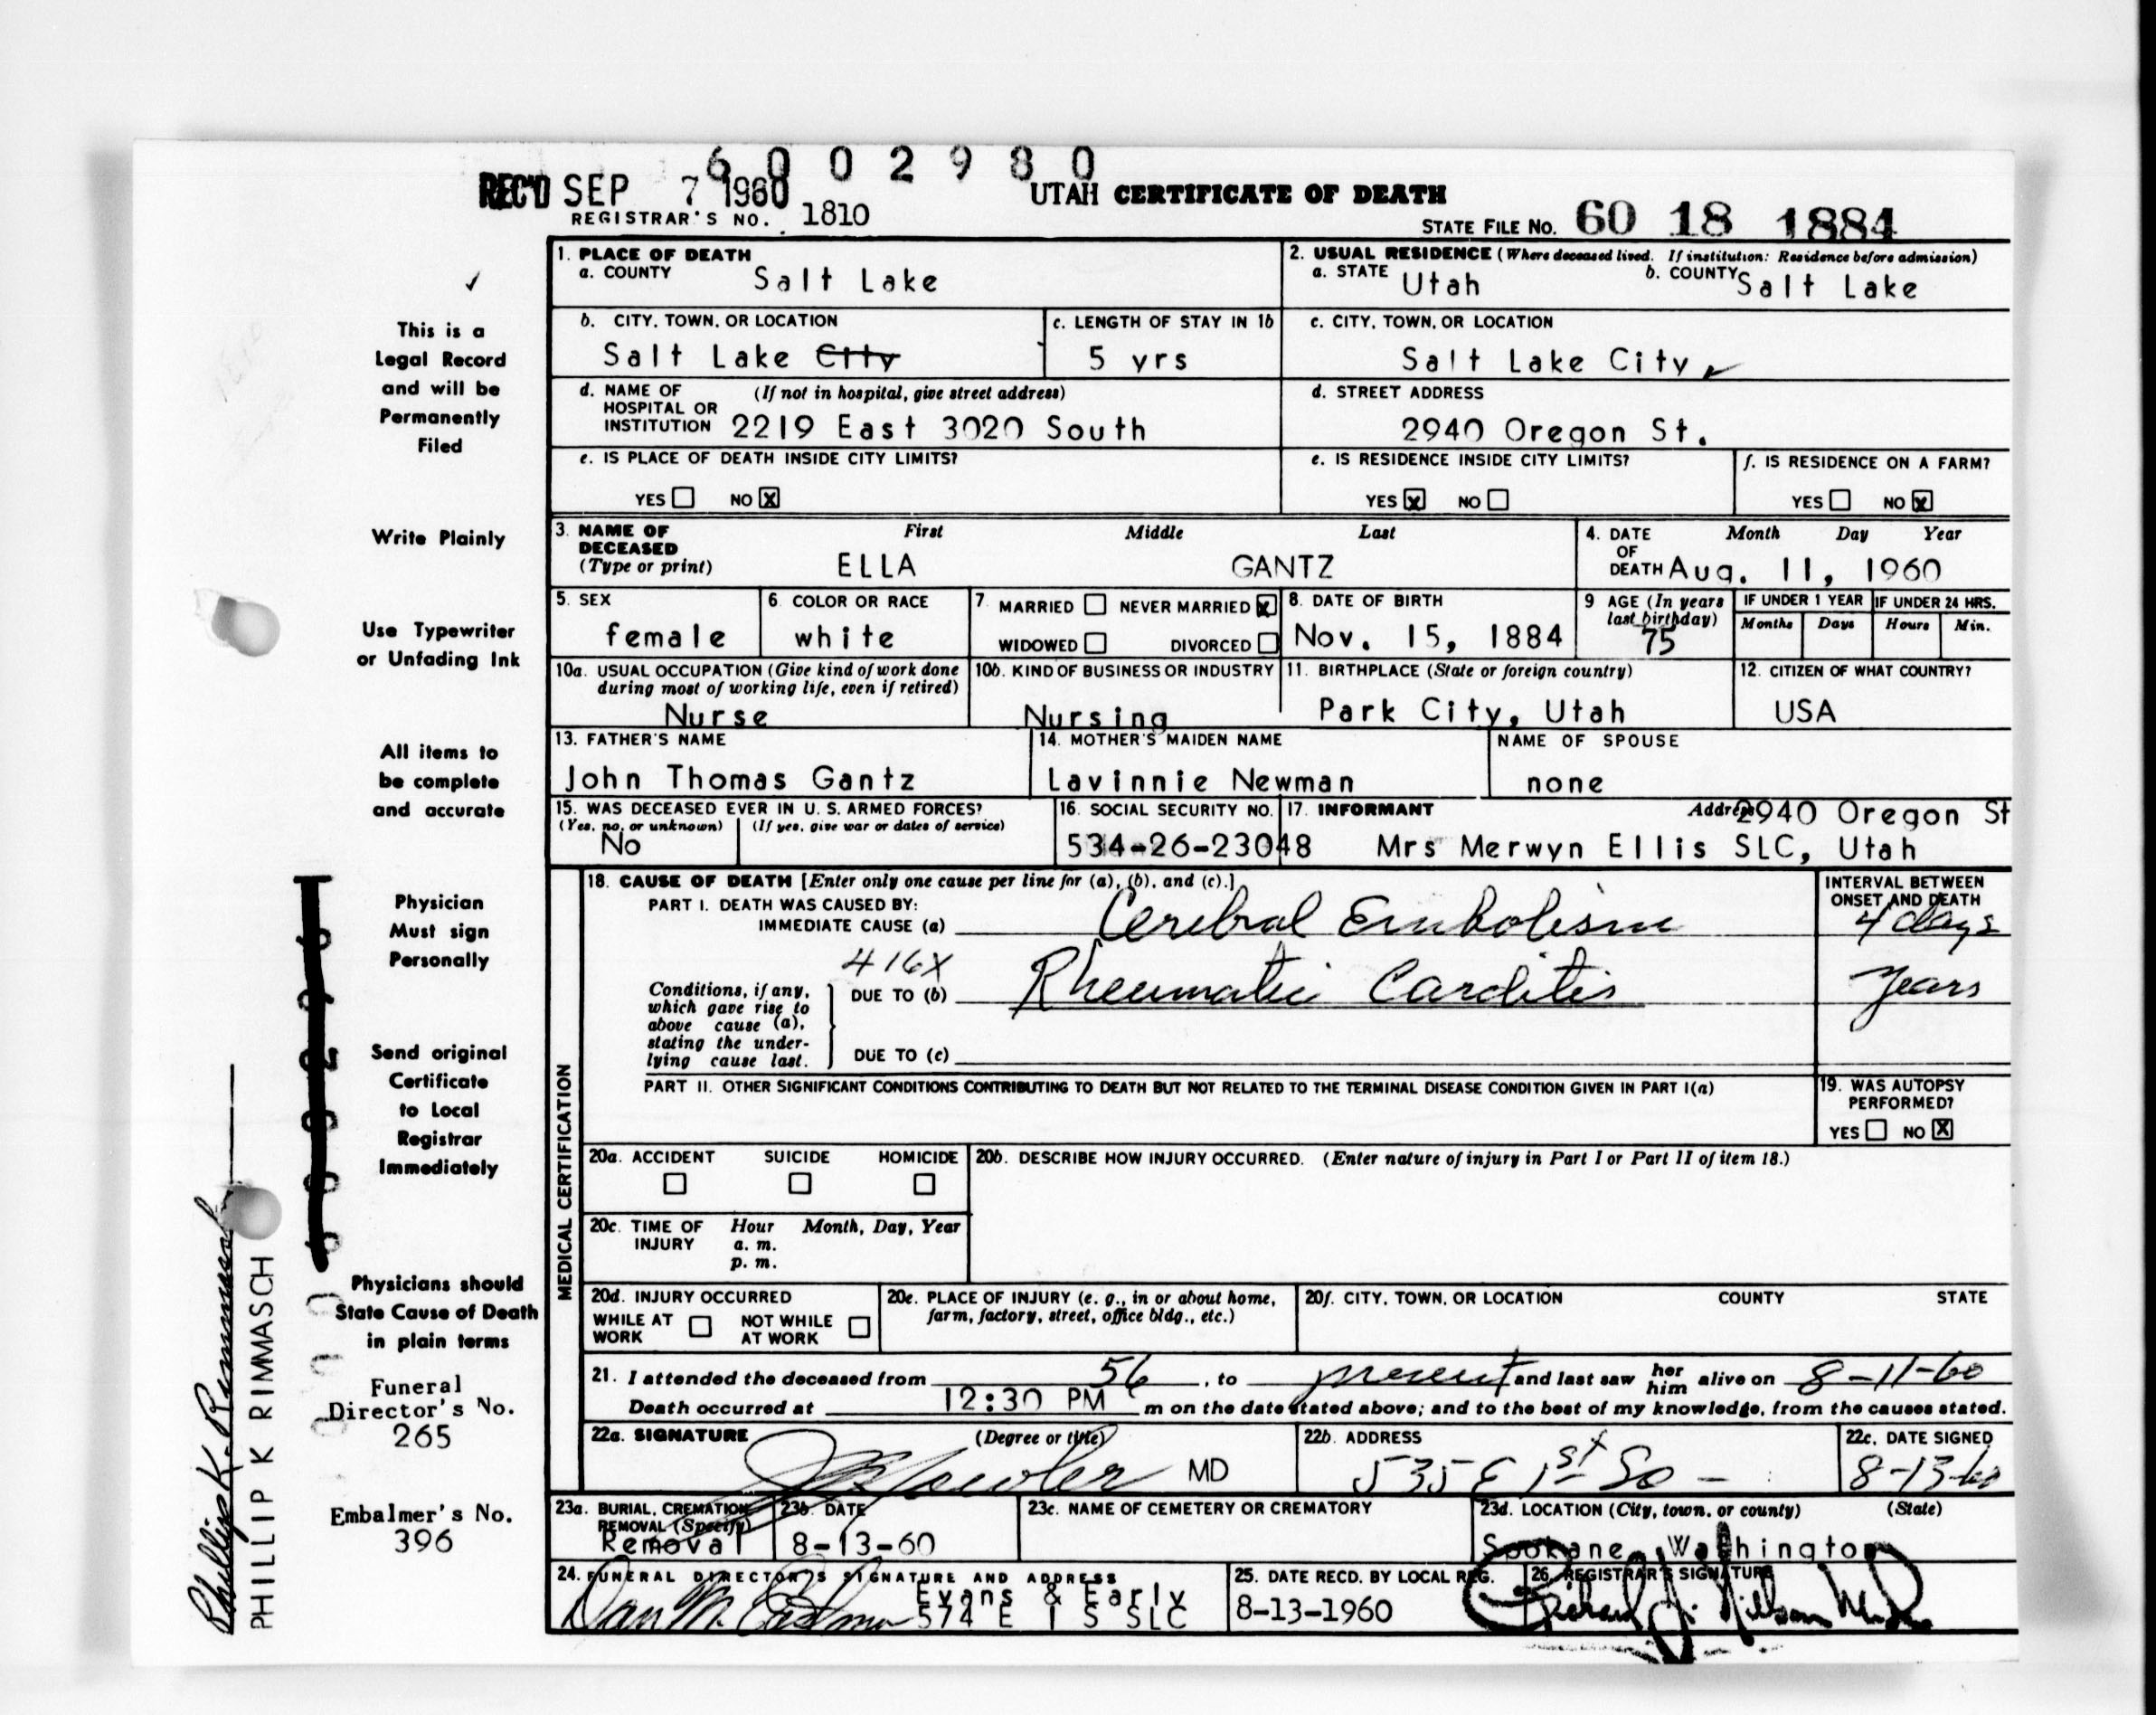 6 0 0 2 9 8 0
REC'D SEP 7 1960
UTAH CERTIFICATE OF DEATH
REGISTRAR'S NO. 1810
STATE FILE NO. 60 18 1884
This is a
Legal Record
and will be
Permanently
Filed
Write Plainly
Use Typewriter
or Unfading Ink
All items to
be complete
and accurate
Physician
Must sign
Personally
Send original
Certificate
to Local
Registrar
Immediately
Physicians should
State Cause of Death
in plain terms
Funeral
Director's No.
265
Embalmer's No.
396
Phillip K. Rimmasch
PHILLIP K RIMMASCH
1. PLACE OF DEATH
a. COUNTY Salt Lake
2. USUAL RESIDENCE (Where deceased lived. If institution: Residence before admission)
a. STATE Utah b. COUNTY Salt Lake
b. CITY, TOWN, OR LOCATION
Salt Lake City
c. LENGTH OF STAY IN 1b
5 yrs
c. CITY, TOWN, OR LOCATION
Salt Lake City
d. NAME OF HOSPITAL OR INSTITUTION (If not in hospital, give street address)
2219 East 3020 South
d. STREET ADDRESS
2940 Oregon St.
e. IS PLACE OF DEATH INSIDE CITY LIMITS?
YES NO X
e. IS RESIDENCE INSIDE CITY LIMITS?
YES X NO
f. IS RESIDENCE ON A FARM?
YES NO X
3. NAME OF DECEASED (Type or print) First Middle Last
ELLA GANTZ
4. DATE OF DEATH Month Day Year
Aug. 11, 1960
5. SEX
female
6. COLOR OR RACE
white
7. MARRIED NEVER MARRIED X
WIDOWED DIVORCED
8. DATE OF BIRTH
Nov. 15, 1884
9 AGE (In years last birthday)
75
IF UNDER 1 YEAR
Months Days
IF UNDER 24 HRS.
Hours Min.
10a. USUAL OCCUPATION (Give kind of work done during most of working life, even if retired)
Nurse
10b. KIND OF BUSINESS OR INDUSTRY
Nursing
11. BIRTHPLACE (State or foreign country)
Park City, Utah
12. CITIZEN OF WHAT COUNTRY?
USA
13. FATHER'S NAME
John Thomas Gantz
14. MOTHER'S MAIDEN NAME
Lavinnie Newman
NAME OF SPOUSE
none
15. WAS DECEASED EVER IN U. S. ARMED FORCES?
(Yes, no, or unknown) (If yes, give war or dates of service)
No
16. SOCIAL SECURITY NO.
534-26-23048
17. INFORMANT Address 2940 Oregon St
Mrs Merwyn Ellis SLC, Utah
MEDICAL CERTIFICATION
18. CAUSE OF DEATH [Enter only one cause per line for (a), (b), and (c).]
INTERVAL BETWEEN ONSET AND DEATH
PART I. DEATH WAS CAUSED BY:
IMMEDIATE CAUSE (a) Cerebral Embolism 4 days
416X
Conditions, if any, which gave rise to above cause (a), stating the underlying cause last.
DUE TO (b) Rheumatic Carditis years
DUE TO (c)
PART II. OTHER SIGNIFICANT CONDITIONS CONTRIBUTING TO DEATH BUT NOT RELATED TO THE TERMINAL DISEASE CONDITION GIVEN IN PART I(a)
19. WAS AUTOPSY PERFORMED?
YES NO X
20a. ACCIDENT SUICIDE HOMICIDE
20b. DESCRIBE HOW INJURY OCCURRED. (Enter nature of injury in Part I or Part II of item 18.)
20c. TIME OF INJURY Hour Month, Day, Year
a. m.
p. m.
20d. INJURY OCCURRED
WHILE AT WORK NOT WHILE AT WORK
20e. PLACE OF INJURY (e. g., in or about home, farm, factory, street, office bldg., etc.)
20f. CITY, TOWN, OR LOCATION COUNTY STATE
21. I attended the deceased from 56, to present and last saw her him alive on 8-11-60
Death occurred at 12:30 PM m on the date stated above; and to the best of my knowledge, from the causes stated.
22a. SIGNATURE (Degree or title)
MD
22b. ADDRESS
535 E 1st So -
22c. DATE SIGNED
8-13-60
23a. BURIAL, CREMATION REMOVAL (Specify)
Removal
23b. DATE
8-13-60
23c. NAME OF CEMETERY OR CREMATORY
23d. LOCATION (City, town, or county) (State)
Spokane, Washington
24. FUNERAL DIRECTOR'S SIGNATURE AND ADDRESS
Evans & Early
574 E 1 S SLC
25. DATE RECD. BY LOCAL REG.
8-13-1960
26. REGISTRAR'S SIGNATURE